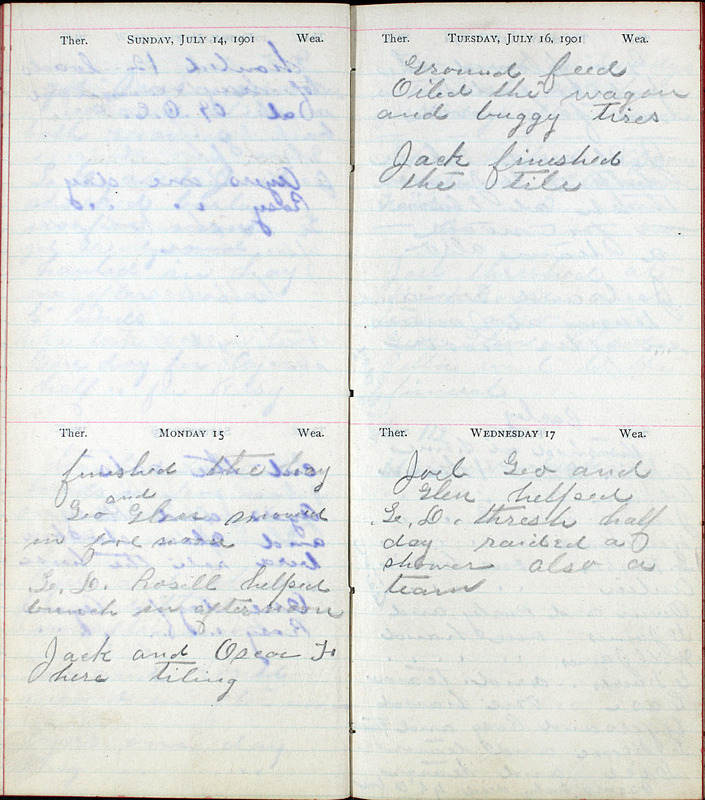 Ther. SUNDAY, JULY 14, 1901 Wea.
Ther. MONDAY 15 Wea.
finished the hay
and
Geo Glen mowed
in fore noon
G. D. Rosill helped
bunch in afternoon
Jack and Oscar F.
here tiling
Ther. TUESDAY, JULY 16, 1901 Wea.
Ground feed
Oiled the wagon
and buggy tires
Jack finished
the tile
Ther. WEDNESDAY 17 Wea.
Joel Geo and
Glen helped
G. D. thresh half
day raided a
shower also a
team